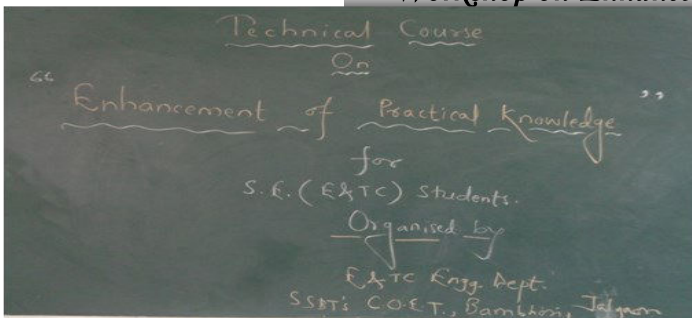 Technical Course
On
“Enhancement of Practical Knowledge”
for
S.E. (E&TC) Students.
Organised by
E&TC Engg. Dept.
SSBT's C.O.E.T., Bambhori, Jalgaon